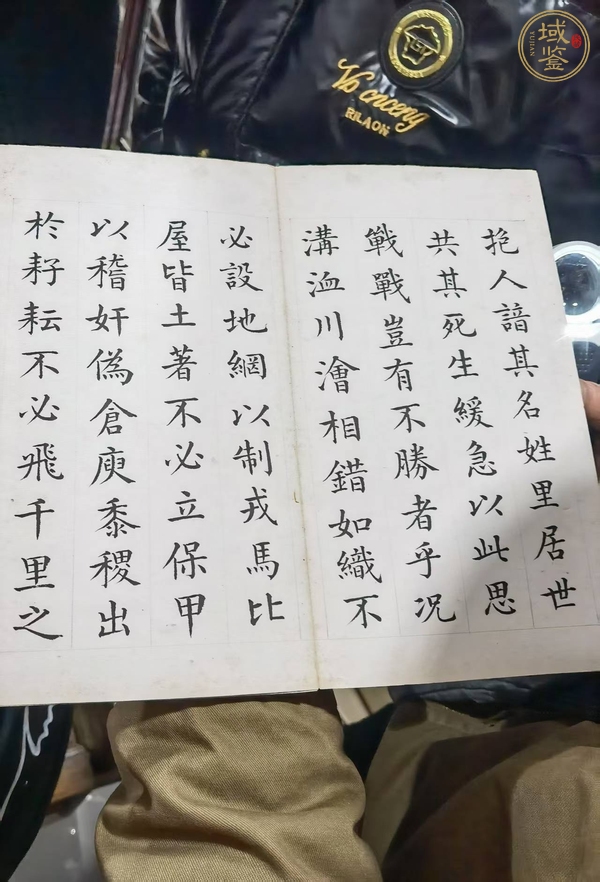 域鉴
YUJIAN
Yo cnceng
RILAON
抱人諳其名姓里居世
共其死生緩急以此思
戰戰豈有不勝者乎況
溝洫川澮相錯如織不
必設地網以制戎馬比
屋皆土著不必立保甲
以稽奸偽倉庾黍稷出
於耔耘不必飛千里之